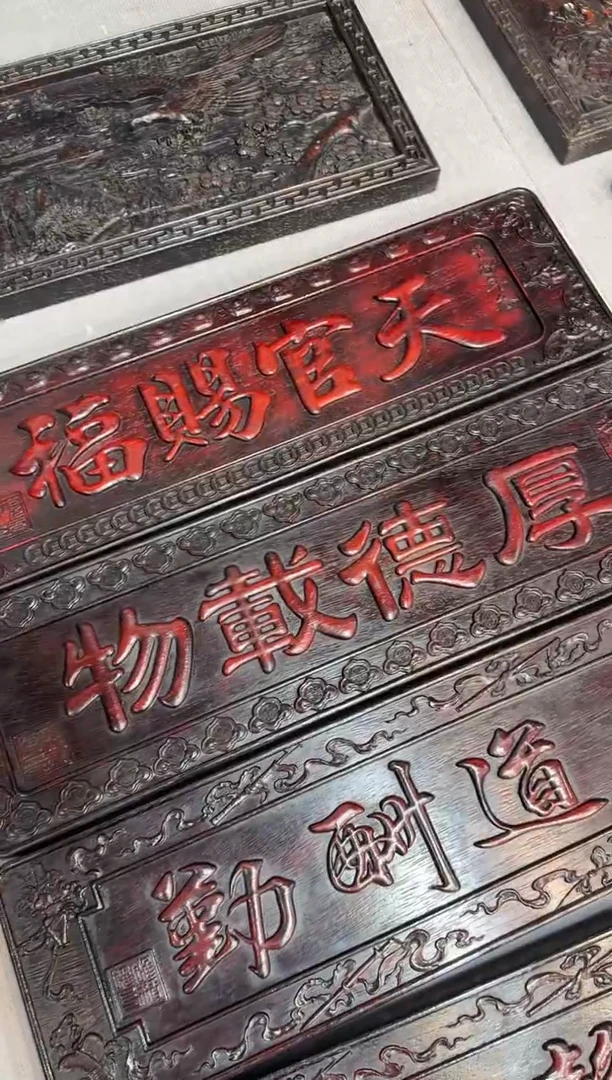 天官賜福
厚德載物
道酬勤